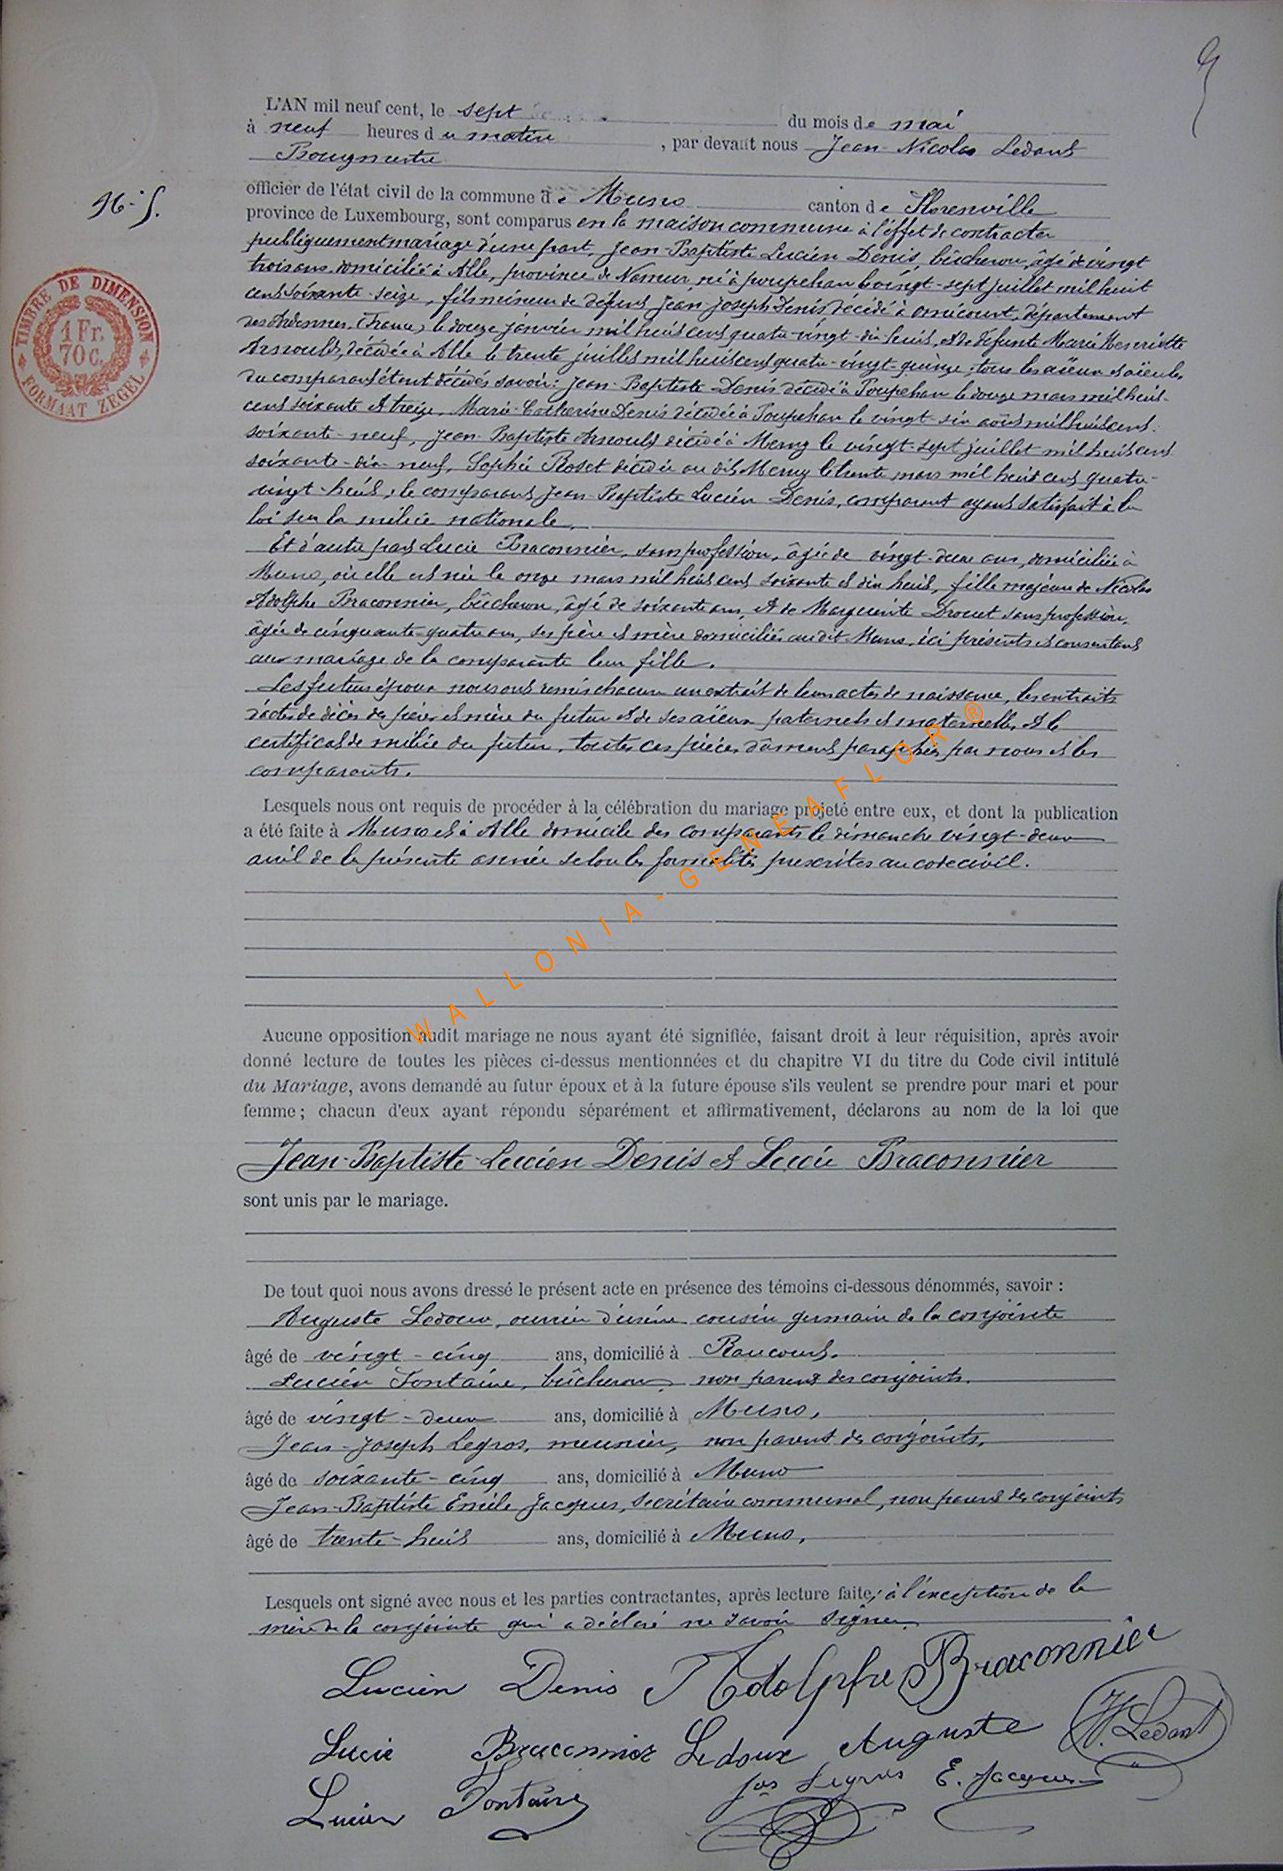 9
L'AN mil neuf cent, le sept du mois de mai
à neuf heures du matin, par devant nous Jean-Nicolas Ledant
Bourgmestre
officier de l'état civil de la commune de Muno canton de Florenville
96-5.
province de Luxembourg, sont comparus en la maison commune à l'effet de contracter
publiquement mariage d'une part, Jean-Baptiste Lucien Denis, bûcheron, âgé de vingt
trois ans, domicilié à Alle, province de Namur, né à Poupehan le vingt-sept juillet mil huit
cent soixante-seize, fils mineur de défunt Jean-Joseph Denis décédé à Omicourt, département
des Ardennes, (France) le douze janvier mil huit cent quatre-vingt-dix-huit, et de défunte Marie Henriette
Arnould, décédée à Alle le trente juillet mil huit cent quatre-vingt-quinze, tous les aïeux et aïeules
du comparant étant décédés savoir: Jean-Baptiste Denis décédé à Poupehan le douze mars mil huit-
cent soixante et treize, Marie-Catherine Denis décédée à Poupehan le vingt-six août mil huit cent-
soixante-neuf, Jean-Baptiste Arnould décédé à Meruy le vingt-sept juillet mil huit cent
soixante-dix-neuf, Sophie Roset décédée au dit Meruy le trente mars mil huit cent quatre-
vingt-huit; le comparant Jean-Baptiste Lucien Denis, comparant ayant satisfait à la
loi sur la milice nationale.
Et d'autre part Lucie Braconnier, sans profession, âgée de vingt-deux ans, domiciliée à
Muno, où elle est née le onze mars mil huit cent soixante et dix huit, fille majeure de Nicolas
Adolphe Braconnier, bûcheron, âgé de soixante ans, et de Marguerite Drouet sans profession,
âgée de cinquante-quatre ans, ses père et mère domiciliés au dit Muno, ici présents et consentant
au mariage de la comparante leur fille.
Les futurs époux nous ont remis chacun un extrait de leurs actes de naissance, les extraits
d'actes de décès des père et mère du futur et de ses aïeux paternels et maternells, et le
certificat de milice du futur, toutes ces pièces dûment paraphées par nous et les
comparants.
Lesquels nous ont requis de procéder à la célébration du mariage projeté entre eux, et dont la publication
a été faite à Muno et à Alle domicile des comparants le dimanche vingt-deux
avril de la présente année selon les formalités prescrites au code civil.
Aucune opposition audit mariage ne nous ayant été signifiée, faisant droit à leur réquisition, après avoir
donné lecture de toutes les pièces ci-dessus mentionnées et du chapitre VI du titre du Code civil intitulé
du Mariage, avons demandé au futur époux et à la future épouse s'ils veulent se prendre pour mari et pour
femme; chacun d'eux ayant répondu séparément et affirmativement, déclarons au nom de la loi que
Jean-Baptiste-Lucien Denis et Lucie Braconnier
sont unis par le mariage.
De tout quoi nous avons dressé le présent acte en présence des témoins ci-dessous dénommés, savoir :
Auguste Ledoux, ouvrier d'usine cousin germain de la conjointe
âgé de vingt-cinq ans, domicilié à Raucourt.
Lucien Fontaine, bûcheron, non parent des conjoints.
âgé de vingt-deux ans, domicilié à Muno,
Jean-Joseph Legros, meunier, non parent des conjoints.
âgé de soixante-cinq ans, domicilié à Muno
Jean-Baptiste Emile Jacques, secrétaire communal, non parent des conjoints
âgé de trente-huit ans, domicilié à Muno,
Lesquels ont signé avec nous et les parties contractantes, après lecture faite, à l'exception de la
mère de la conjointe qui a déclaré ne savoir signer.
Lucien Denis Adolphe Braconnier
Lucie Braconnier Ledoux Auguste JN. Ledant
Lucien Fontaine Jos Legros E. Jacques
TIMBRE DE DIMENSION
1 Fr.
70 c.
FORMAAT ZEGEL
WALLONIA-GENEAFLOR ®